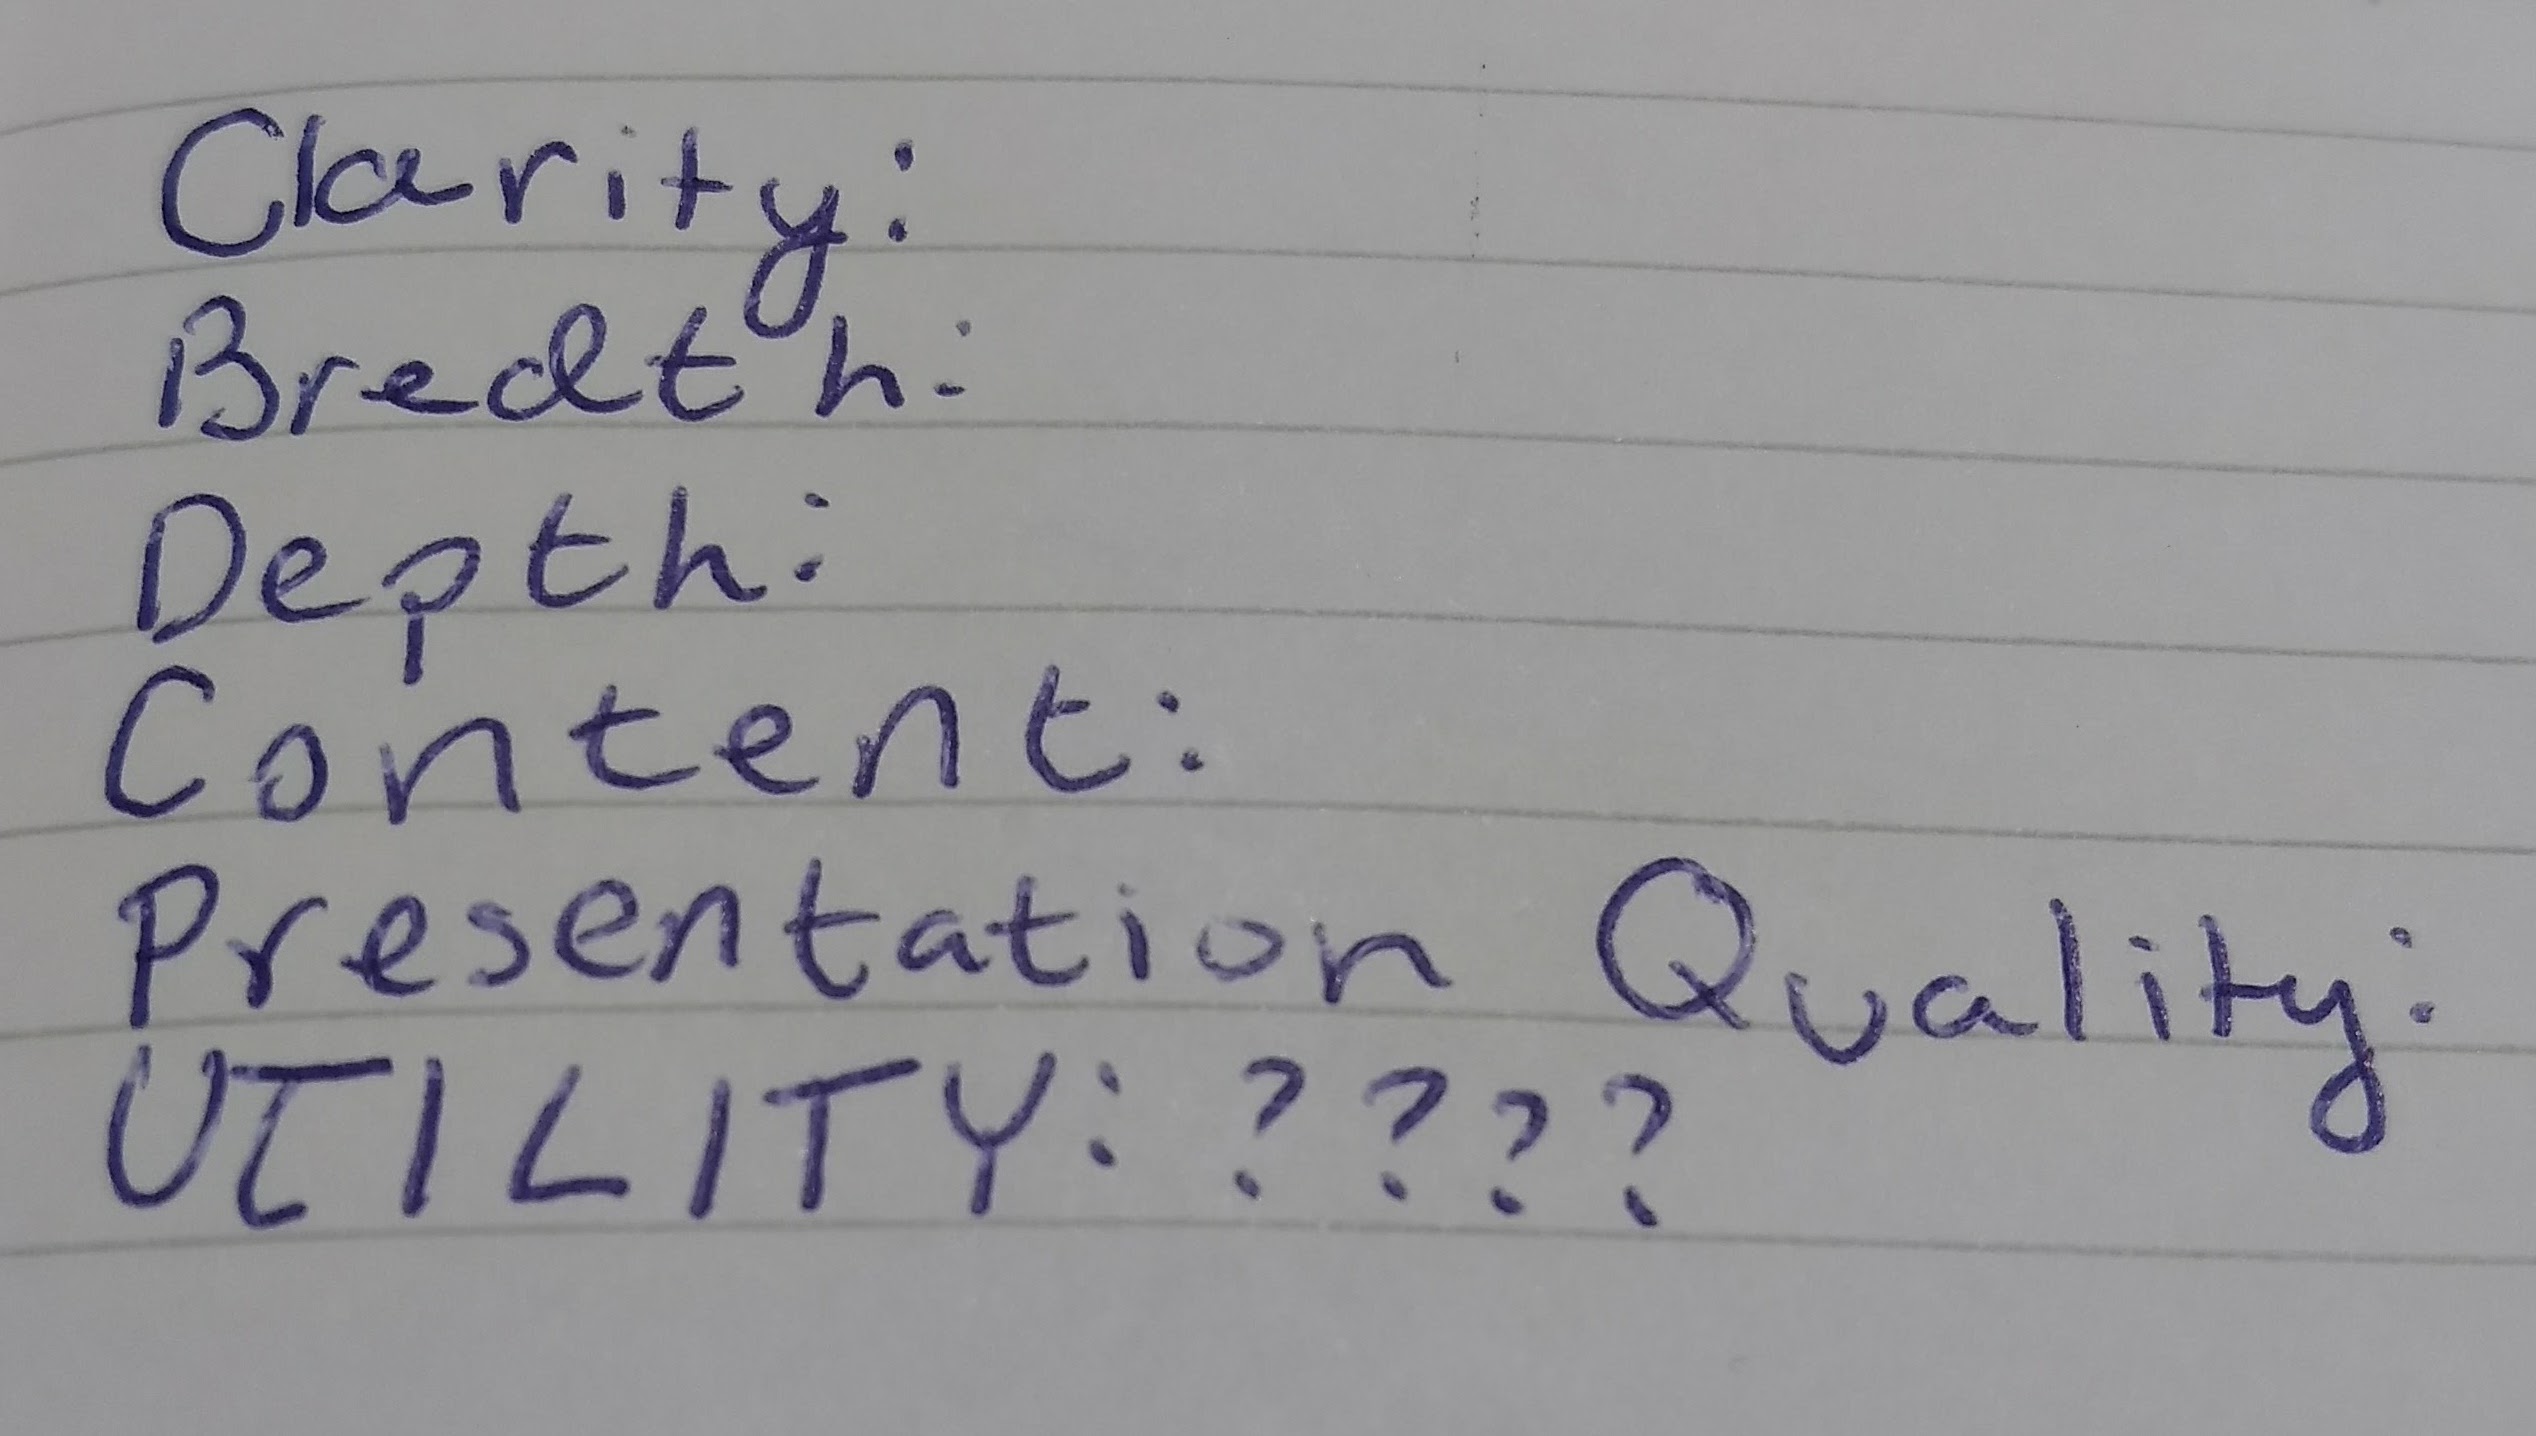 Clarity:
Bredth:
Depth:
Content:
Presentation Quality:
UTILITY: ????